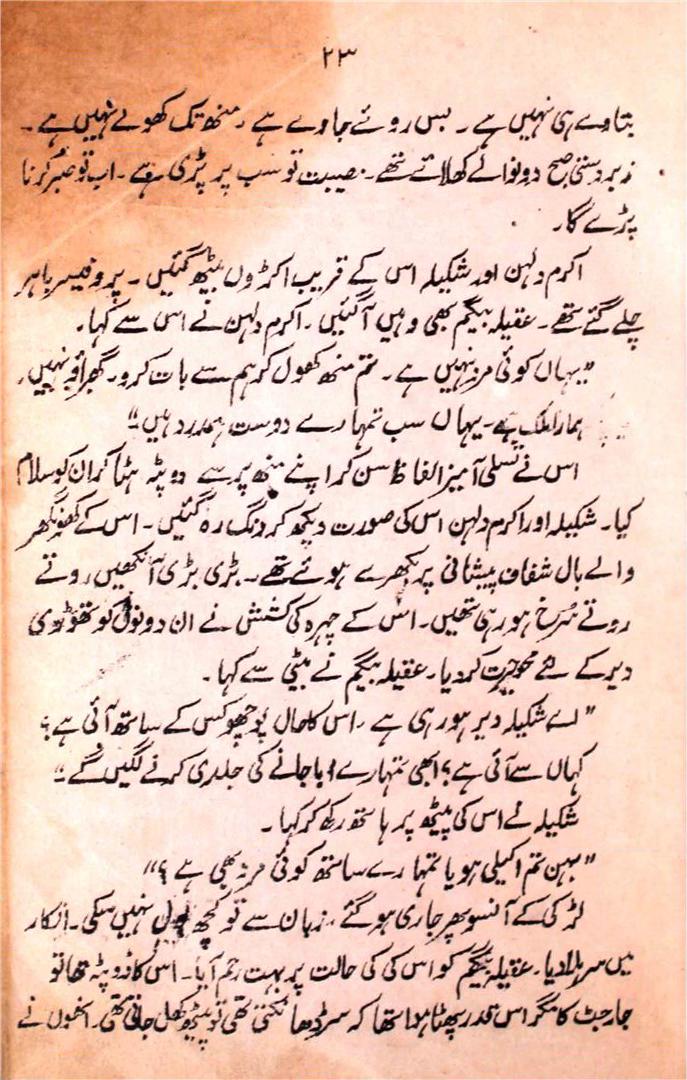 ۲۳
بتاوے ہی نہیں ہے۔ بس روئے جاوے ہے۔ منھ تک کھولے نہیں ہے۔
زبردستی صبح دو نوالے کھلائے تھے۔ مصیبت تو سب پر پڑی ہے۔ اب تو صبر کرنا
پڑے گا۔
اکرم دلہن اور شکیلہ اس کے قریب اکڑوں بیٹھ گئیں۔ پروفیسر باہر
چلے گئے تھے۔ عقیلہ بیگم بھی وہیں آگئیں۔ اکرم دلہن نے اس سے کہا۔
”یہاں کوئی مرد نہیں ہے۔ تم منھ کھول کر ہم سے بات کرو۔ گھبراؤ نہیں۔
ہمارا ملک ہے۔ یہاں سب تمہارے دوست ہمدرد ہیں“
اس نے تسلی آمیز الفاظ سن کر اپنے منھ پر سے دوپٹہ ہٹا کر ان کو سلام
کیا۔ شکیلہ اور اکرم دلہن اس کی صورت دیکھ کر دنگ رہ گئیں۔ اس کے گھونگھر
والے بال شفاف پیشانی پر بکھرے ہوئے تھے۔ بڑی بڑی آنکھیں روتے
روتے سُرخ ہو رہی تھیں۔ اس کے چہرہ کی کشش نے ان دونوں کو تھوڑی
دیر کے لئے محوِ حیرت کر دیا۔ عقیلہ بیگم نے بیٹی سے کہا۔
”اے شکیلہ دیر ہو رہی ہے۔ اس کا حال پوچھو کس کے ساتھ آئی ہے؟
کہاں سے آئی ہے؟ ابھی تمہارے ابا جانے کی جلدی کرنے لگیں گے“
شکیلہ نے اس کی پیٹھ پر ہاتھ رکھ کر کہا۔
”بہن تم اکیلی ہو یا تمہارے ساتھ کوئی مرد بھی ہے؟“
لڑکی کے آنسو پھر جاری ہو گئے۔ زبان سے تو کچھ بول نہیں سکی۔ انکار
میں سر ہلا دیا۔ عقیلہ بیگم کو اس کی کی حالت پر بہت رحم آیا۔ اس کا دوپٹہ تھا تو
جارجٹ کا مگر اس قدر پھٹا ہوا تھا کہ سر ڈھانکتی تھی تو پیٹھ کھل جاتی تھی۔ انھوں نے